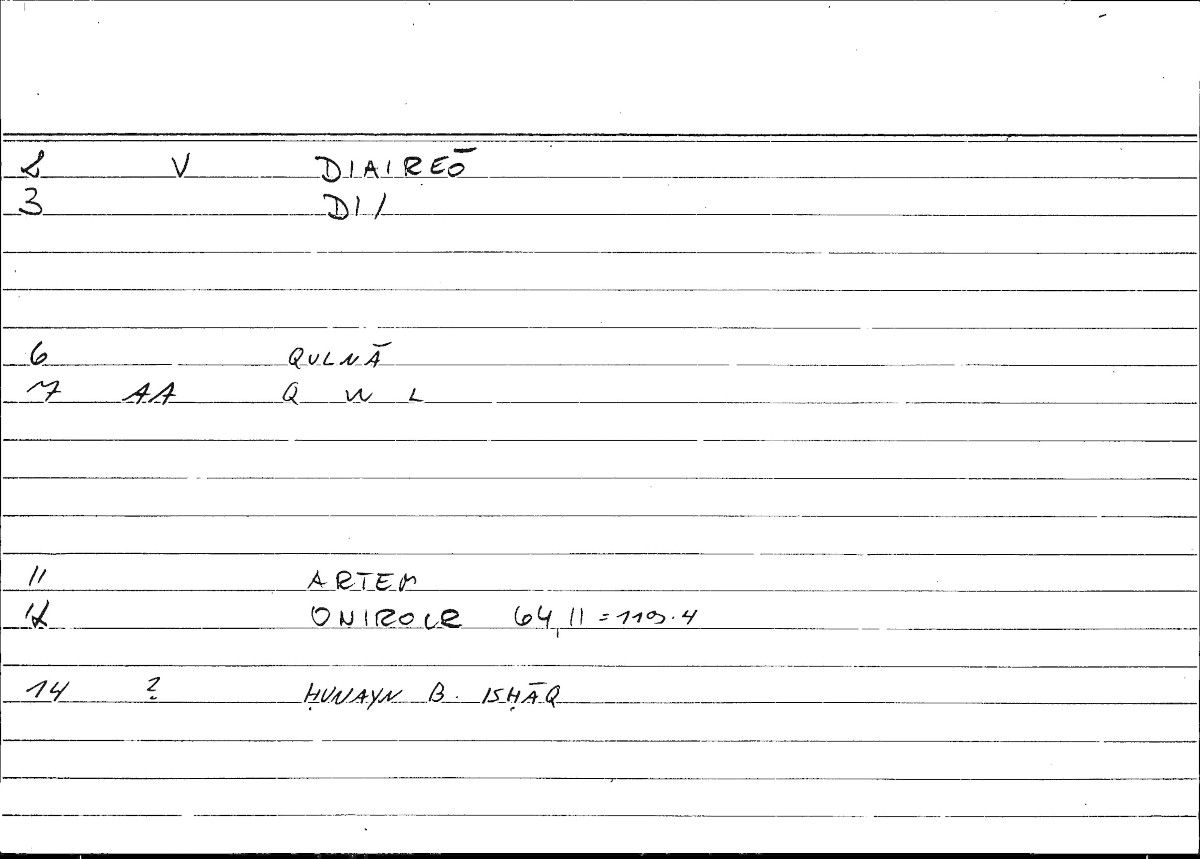 2 V DIAIREŌ
3 DI/
6 QULNĀ
7 AA Q W L
11 ARTEM
12 ONIROCR 64,11 = 119.4
14 2 ḤUNAYN B. ISḤĀQ